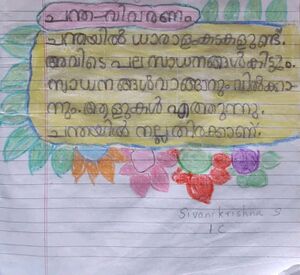 ചന്ത-വിവരണം
ചന്തയിൽ ധാരാളം കടകളുണ്ട്.
അവിടെ പല സാധനങ്ങൾ കിട്ടും.
സാധനങ്ങൾ വാങ്ങാനും വിൽക്കാ-
നും ആളുകൾ എത്തുന്നു.
ചന്തയിൽ നല്ല തിരക്കാണ്.
Sivanikrishna S
1 C